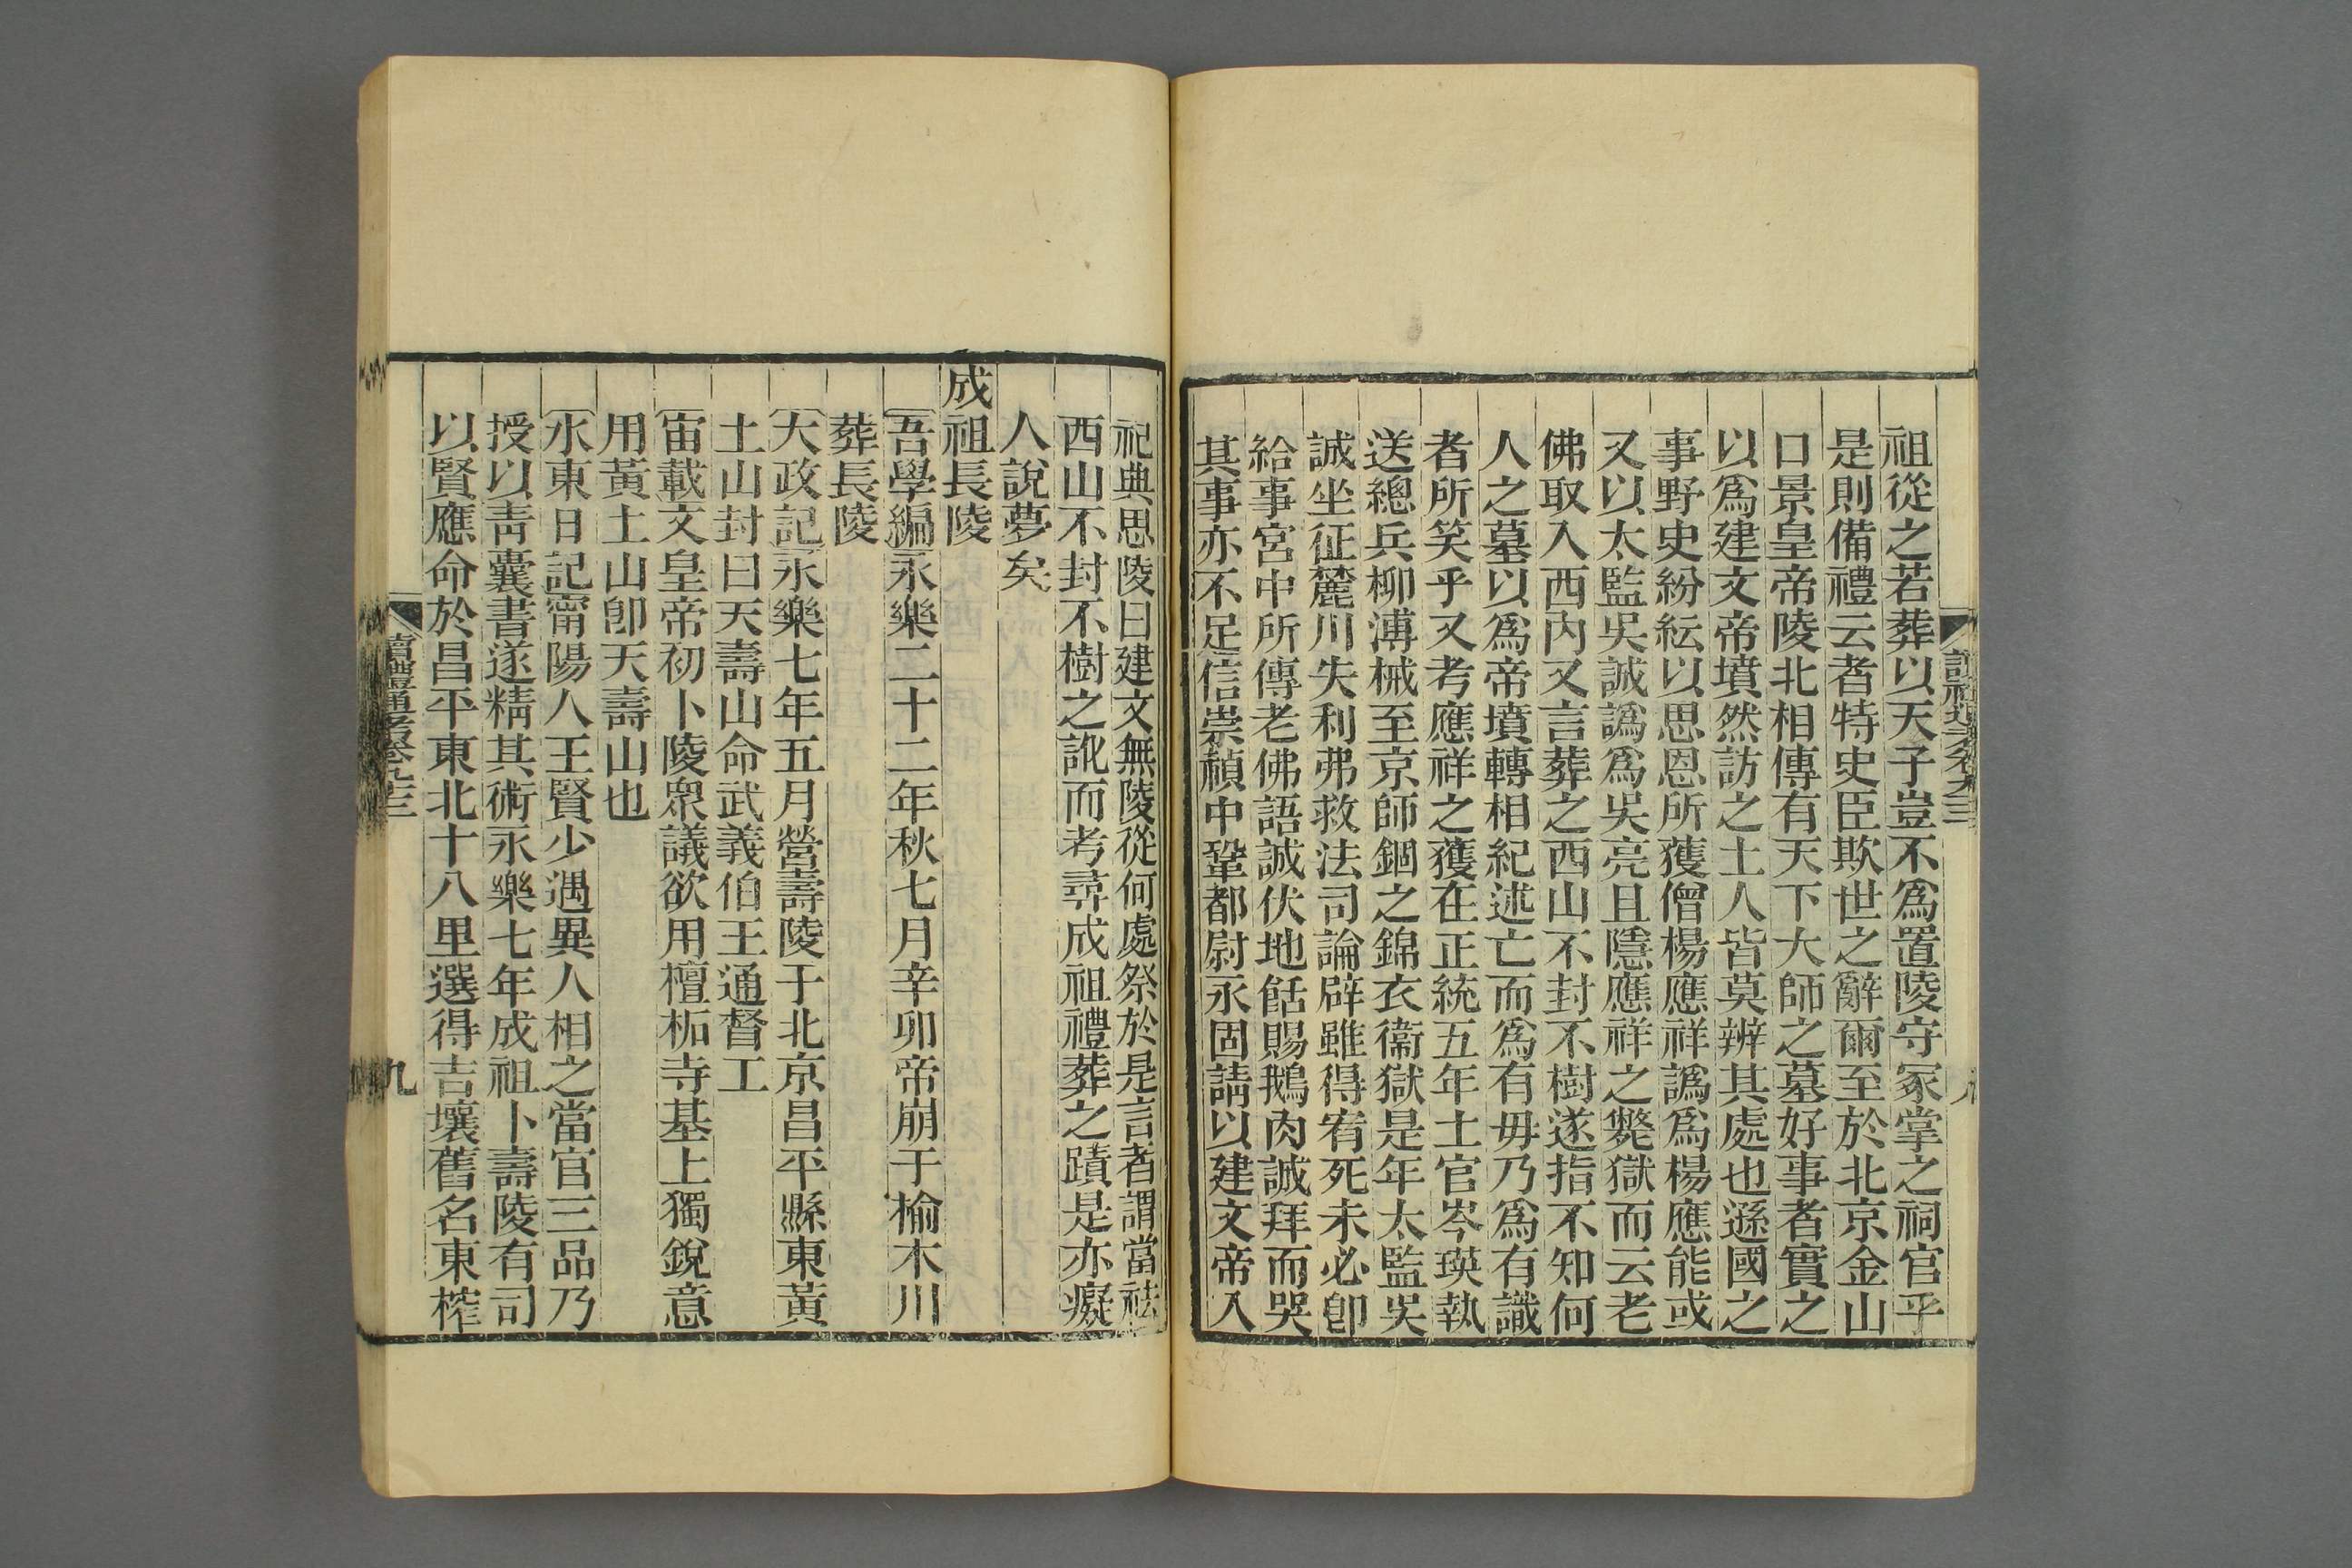 祖從之若葬以天子豈不爲置陵守冢掌之祠官乎
是則備禮云者特史臣欺世之辭爾至於北京金山
口景皇帝陵北相傳有天下大師之墓好事者實之
以爲建文帝墳然訪之土人皆莫辨其處也遜國之
事野史紛紜以思恩所獲僧楊應祥譌爲楊應能或
又以太監吳誠譌爲吳亮且隱應祥之斃獄而云老
佛取入西內又言葬之西山不封不樹遂指不知何
人之墓以爲帝墳轉相紀述亡而爲有毋乃爲有識
者所笑乎又考應祥之獲在正統五年土官岑瑛執
送總兵柳溥械至京師錮之錦衣衞獄是年太監吳
誠坐征麓川失利弗救法司論辟雖得宥死未必卽
給事宮中所傳老佛語誠伏地餂賜鵝肉誠拜而哭
其事亦不足信崇禎中鞏都尉永固請以建文帝入
祀典思陵曰建文無陵從何處祭於是言者謂當祛
西山不封不樹之訛而考尋成祖禮葬之蹟是亦癡
人說夢矣
成祖長陵
吾學編永樂二十二年秋七月辛卯帝崩于榆木川
葬長陵
大政記永樂七年五月營壽陵于北京昌平縣東黃
土山封曰天壽山命武義伯王通督工
宙載文皇帝初卜陵眾議欲用檀柘寺基上獨銳意
用黃土山卽天壽山也
水東日記甯陽人王賢少遇異人相之當官三品乃
授以靑囊書遂精其術永樂七年成祖卜壽陵有司
以賢應命於昌平東北十八里選得吉壤舊名東榨
讀禮通考卷九十三
九